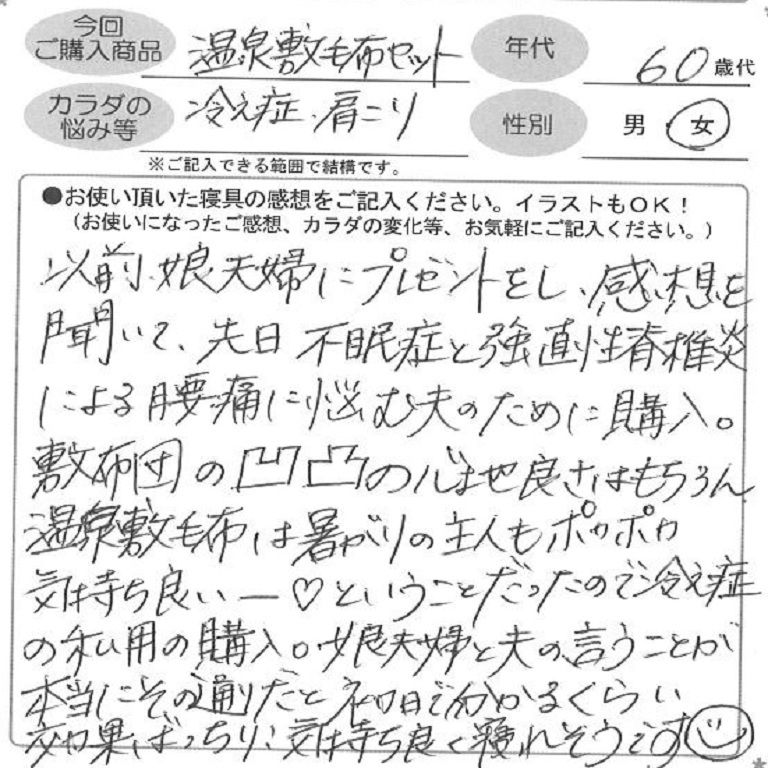 今回
ご購入商品
温泉敷毛布セット
年代
60歳代
カラダの
悩み等
冷え症、肩こり
性別
男・女
※ご記入できる範囲で結構です。
●お使い頂いた寝具の感想をご記入ください。イラストもOK!
(お使いになったご感想、カラダの変化等、お気軽にご記入ください。)
以前、娘夫婦にプレゼントをし、感想を
聞いて、先日 不眠症と強直性脊椎炎
による腰痛に悩む夫のために購入。
敷布団の凹凸の心地良さはもちろん
温泉敷毛布は暑がりの主人もポカポカ
気持ち良いー♡ということだったので冷え症
の私用の購入。娘夫婦と夫の言うことが
本当にその通りだと初日で分かるくらい
効果ばっちり!気持ち良く寝れそうです